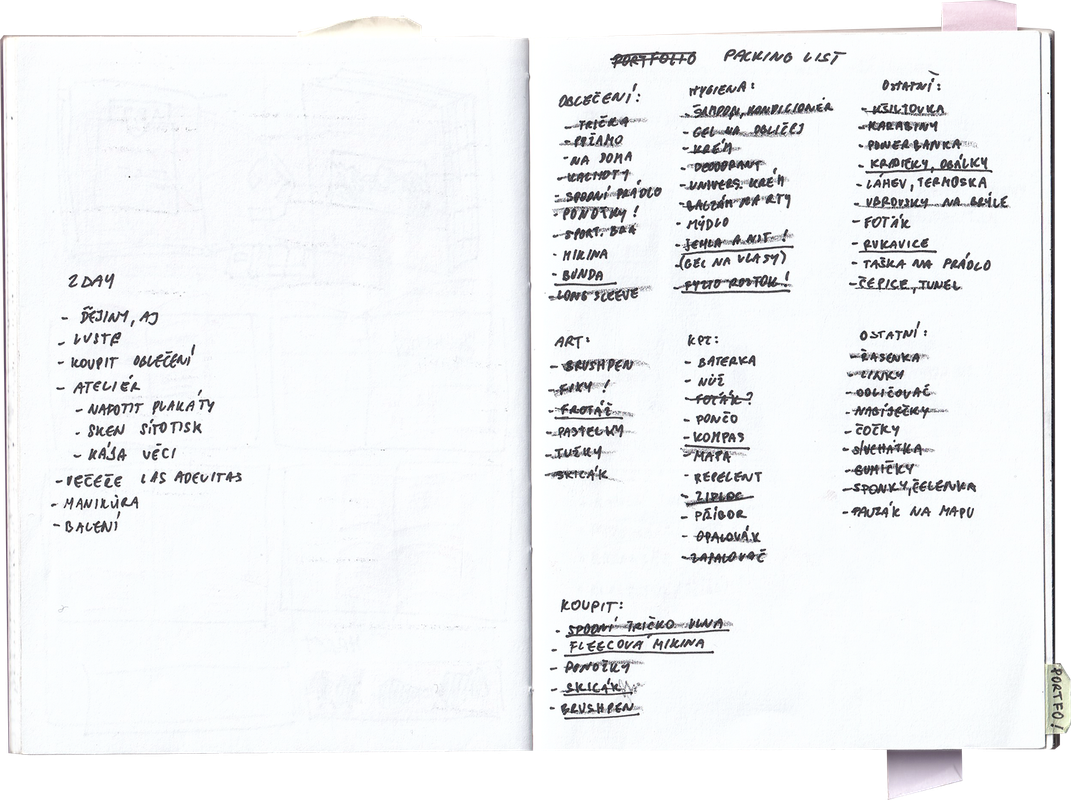 2DAY
- DĚJINY, AJ
- LUSTR
- KOUPIT OBLEČENÍ
- ATELIÉR
- NAFOTIT PLAKÁTY
- SKEN SÍTOTISK
- KÁJA VĚCI
- VEČEŘE LAS ADELITAS
- MANIKÚRA
- BALENÍ
PORTFOLIO PACKING LIST
OBLEČENÍ:
- TRIČKA
- PYŽAMO
- NA DOMA
- KALHOTY
- SPODNÍ PRÁDLO
- PONOŽKY!
- SPORT. BRA
- MIKINA
- BUNDA
- LONG SLEEVE
HYGIENA:
- ŠAMPON, KONDICIONÉR
- GEL NA OBLIČEJ
- KRÉM
- DEODORANT
- UNIVERS. KRÉM
- BALZÁM NA RTY
- MÝDLO
- JEHLA A NIT!
- (GEL NA VLASY)
- FYZIO ROZTOK!
OSTATNÍ:
- KŠILTOVKA
- KARABINY
- POWERBANKA
- KRABIČKY, OBÁLKY
- LÁHEV, TERMOSKA
- UBROUSKY NA BRÝLE
- FOŤÁK
- RUKAVICE
- TAŠKA NA PRÁDLO
- ČEPICE, TUNEL
ART:
- BRUSHPEN
- FIXY!
- FROTÁŽ
- PASTELKY
- TUŽKY
- SKICÁK
KPZ:
- BATERKA
- NŮŽ
- FOŤÁK?
- PONČO
- KOMPAS
- MAPA
- REPELENT
- ZIPLOC
- PŘÍBOR
- OPALOVÁK
- ZAPALOVAČ
OSTATNÍ:
- ŘASENKA
- LINKY
- ODLIČOVAČ
- NABÍJEČKY
- ČOČKY
- SLUCHÁTKA
- GUMIČKY
- SPONKY, ČELENKA
- PAUZÁK NA MAPU
KOUPIT:
- SPODNÍ TRIČKO VLNA
- FLEECOVÁ MIKINA
- PONOŽKY
- SKICÁK
- BRUSHPEN
PORTFO!